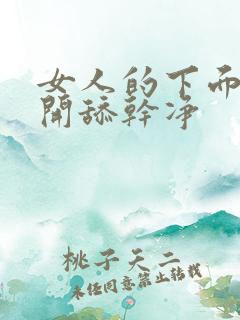 女人的下而
開舔幹凈
桃子天二
未任同意禁止转载